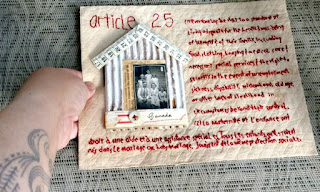 article 25
has the right to a standard of
living adequate for the health and well being
of himself and of his family, including
food, clothing, housing
social services, and the right to
security in the event of unemployment
sickness, disability, widowhood, old age
or other lack of livelihood in
circumstances beyond his control.
Maternité et l'enfance ont
droit à une aide et à une assistance spéciales. Tous les enfants, qu'ils soient
nés dans le mariage ou hors mariage, jouissent de la même protection sociale.
Canada